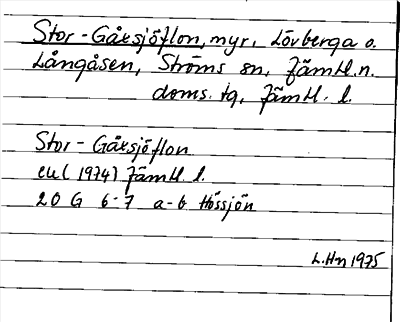 Stor-Gåxsjöflon, myr, Lövberga o.
Långåsen, Ströms sn, Jämtl. n.
doms. tg, Jämtl. l.
Stor-Gåxsjöflon
eu (1974) Jämtl. l.
20 G 6-7 a-b Hössjön
L.Hn 1975